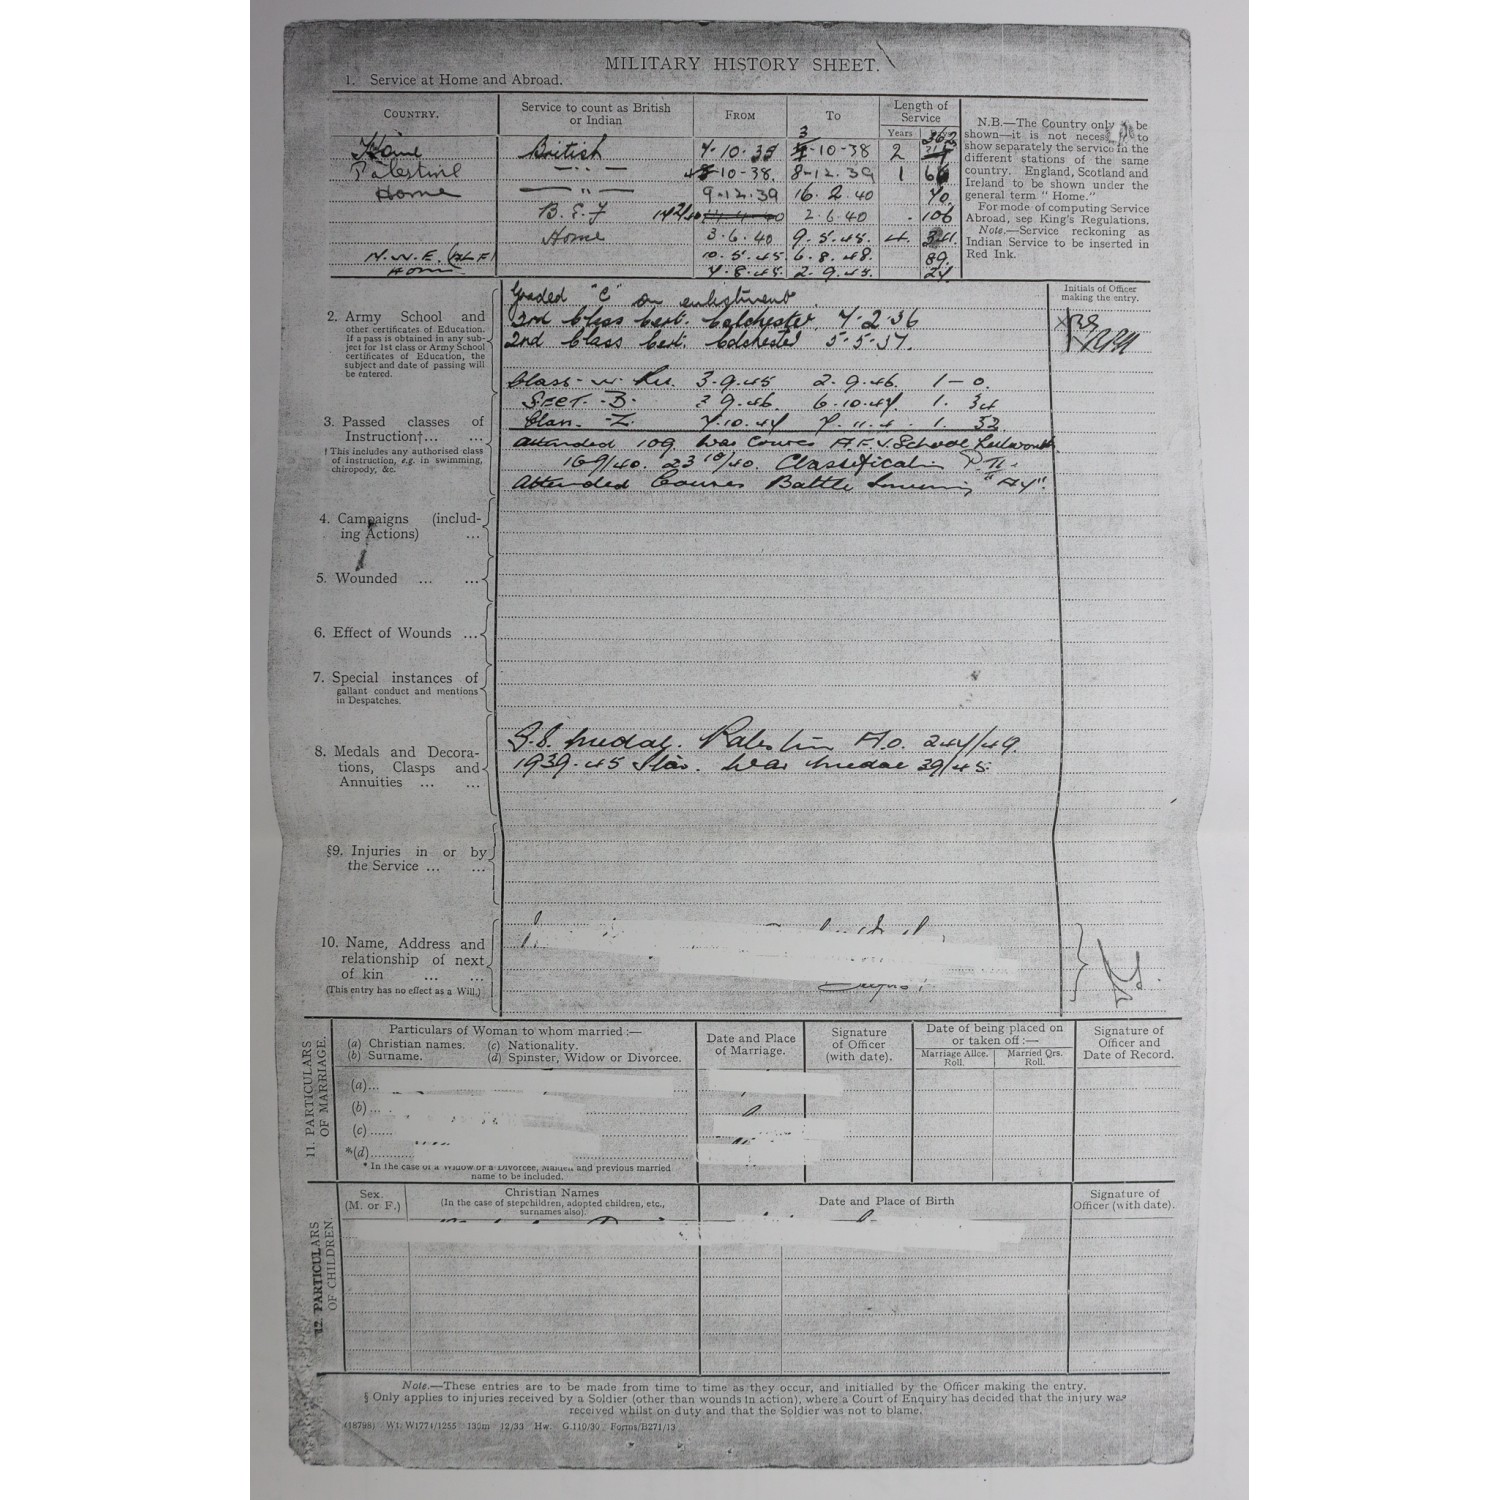 MILITARY HISTORY SHEET.
1. Service at Home and Abroad.
COUNTRY. Service to count as British or Indian FROM TO Length of Service
Years
N.B.—The Country only to be
shown—it is not necessary to
show separately the service in the
different stations of the same
country. England, Scotland and
Ireland to be shown under the
general term "Home."
For mode of computing Service
Abroad, see King's Regulations.
Note.—Service reckoning as
Indian Service to be inserted in
Red Ink.
Home British 7.10.35 3-10-38 2 362
Palestine —"— 4-10-38. 8-12.39 1 66
Home —"— 9-12.39 16.2.40 70
B.E.F 17/2/40 2.6.40 . 106
Home 3.6.40 9.5.45. 4. 341
N.W.E. (BLA) 10.5.45 6.8.45. 89.
Home 7.8.45. 2.9.45. 27
Initials of Officer
making the entry.
2. Army School and
other certificates of Education.
If a pass is obtained in any sub-
ject for 1st class or Army School
certificates of Education, the
subject and date of passing will
be entered.
Graded "C" on enlistment.
3rd Class Cert. Colchester 7.2.36
2nd Class Cert. Colchester 5.5.37.
Class-W. Res. 3.9.45 2.9.46. 1-0.
Sect. -B- 3 9.46. 6.10.47. 1. 34
Class. -Z. 7.10.47
3. Passed classes of
Instruction†... ...
† This includes any authorised class
of instruction, e.g. in swimming,
chiropody, &c.
Attended 109 War Course A.F.V. School Lulworth
16 9/40. 23 10/40. Classification
Attended Course Battle
4. Campaigns (includ-
ing Actions) ...
5. Wounded ... ...
6. Effect of Wounds ...
7. Special instances of
gallant conduct and mentions
in Despatches.
8. Medals and Decora-
tions, Clasps and
Annuities ... ...
G.S. Medal. Palestine A.O. 247/49.
1939-45 Star. War Medal 39/45.
§9. Injuries in or by
the Service ... ...
10. Name, Address and
relationship of next
of kin ... ...
(This entry has no effect as a Will.)
11. PARTICULARS
OF MARRIAGE.
Particulars of Woman to whom married :—
(a) Christian names. (c) Nationality.
(b) Surname. (d) Spinster, Widow or Divorcee.
Date and Place
of Marriage.
Signature
of Officer
(with date).
Date of being placed on
or taken off :—
Marriage Allce.
Roll.
Married Qrs.
Roll.
Signature of
Officer and
Date of Record.
(a)...
(b)...
(c)......
*(d)..........
* In the case of a Widow or a Divorcee, Maiden and previous married
name to be included.
12. PARTICULARS
OF CHILDREN.
Sex.
(M. or F.)
Christian Names
(In the case of stepchildren, adopted children, etc.,
surnames also).
Date and Place of Birth
Signature of
Officer (with date).
Note.—These entries are to be made from time to time as they occur, and initialled by the Officer making the entry.
§ Only applies to injuries received by a Soldier (other than wounds in action), where a Court of Enquiry has decided that the injury was
received whilst on duty and that the Soldier was not to blame.
(18798) Wt. W1774/1255 130m 12/33 Hw. G.110/30 Forms/B271/13